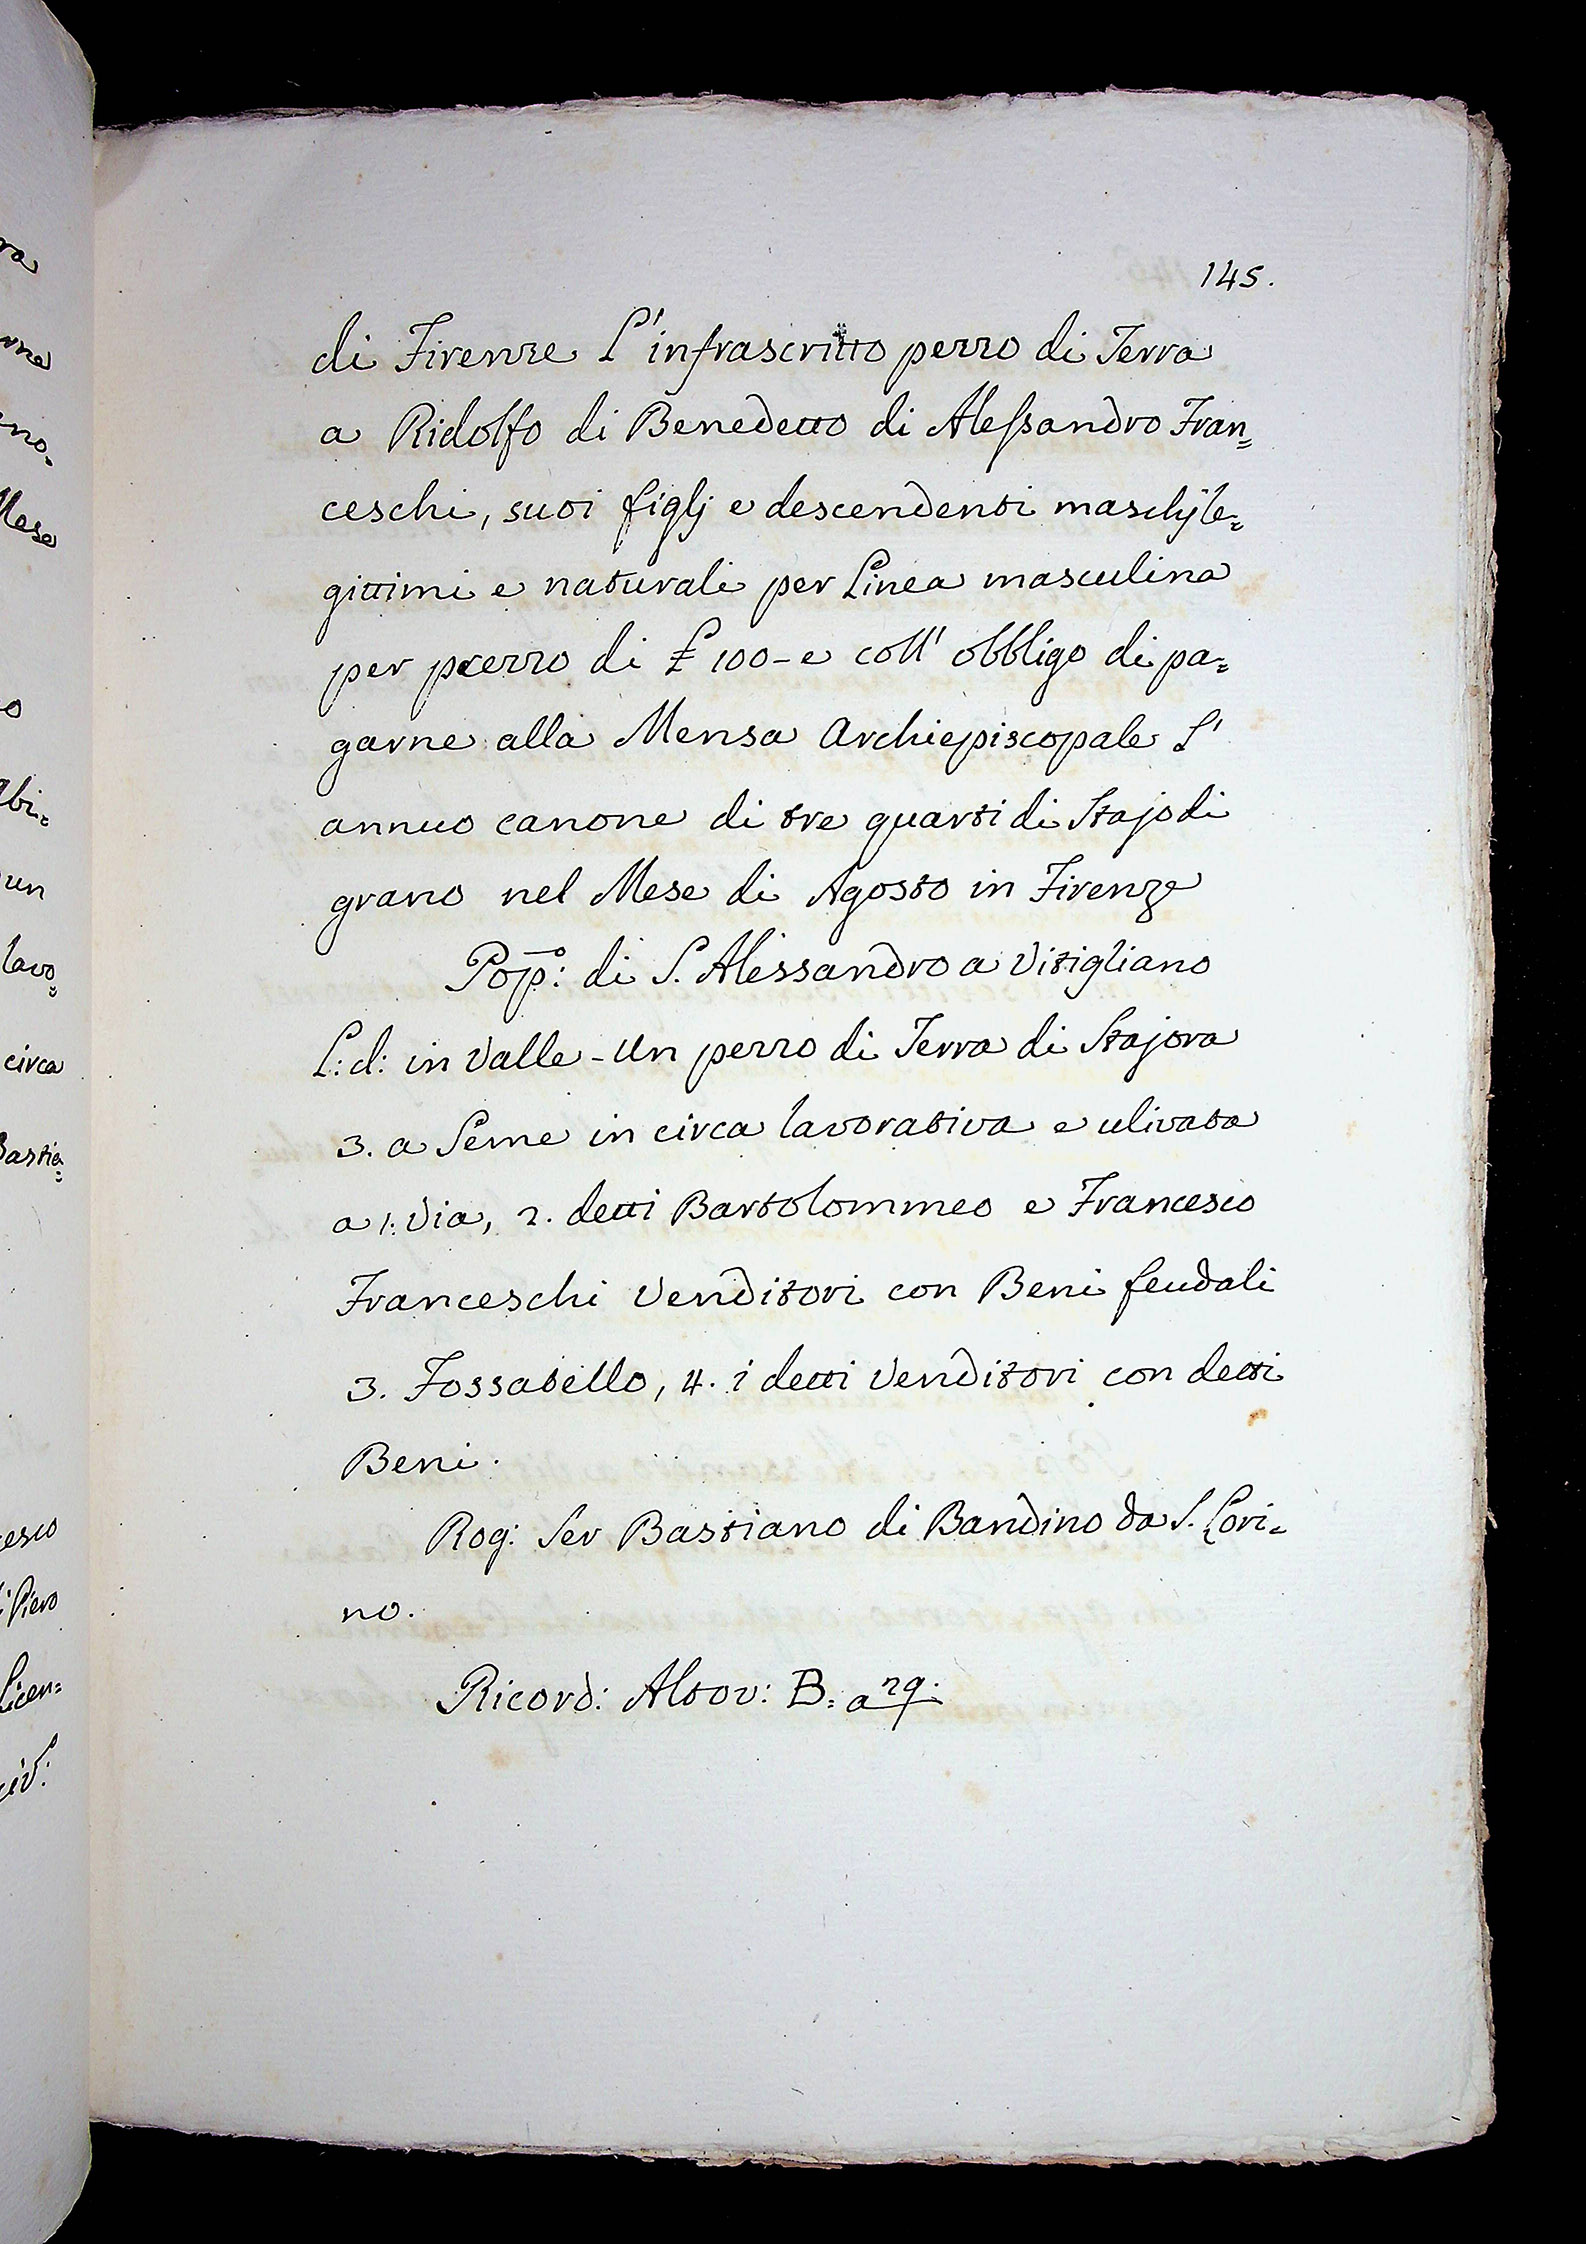 145.
di Firenze L'infrascritto pezzo di Terra
a Ridolfo di Benedetto di Alessandro Fran=
ceschi, suoi figlj e descendenti maschj le=
gittimi e naturali per Linea masculina
per prezzo di £ 100 - e coll' obbligo di pa=
garne alla Mensa Archiepiscopale l'
annuo canone di tre quarti di Stajo di
grano nel Mese di Agosto in Firenze
Pop:o di S. Alessandro a Vitigliano
L: d: in Valle - Un pezzo di Terra di Stajora
3. a Seme in circa lavorativa e ulivata
a 1: Via, 2. detti Bartolommeo e Francesco
Franceschi Venditori con Beni feudali
3. Fossatello, 4. i detti Venditori con detti
Beni.
Rog: Ser Bastiano di Bandino da S. Lori=
no.
Ricord: Altov: B. a 29.
ra
rne
no.
Mese
o
abi=
un
lavo=
circa
Bastia=
cesco
Piero
Licen=